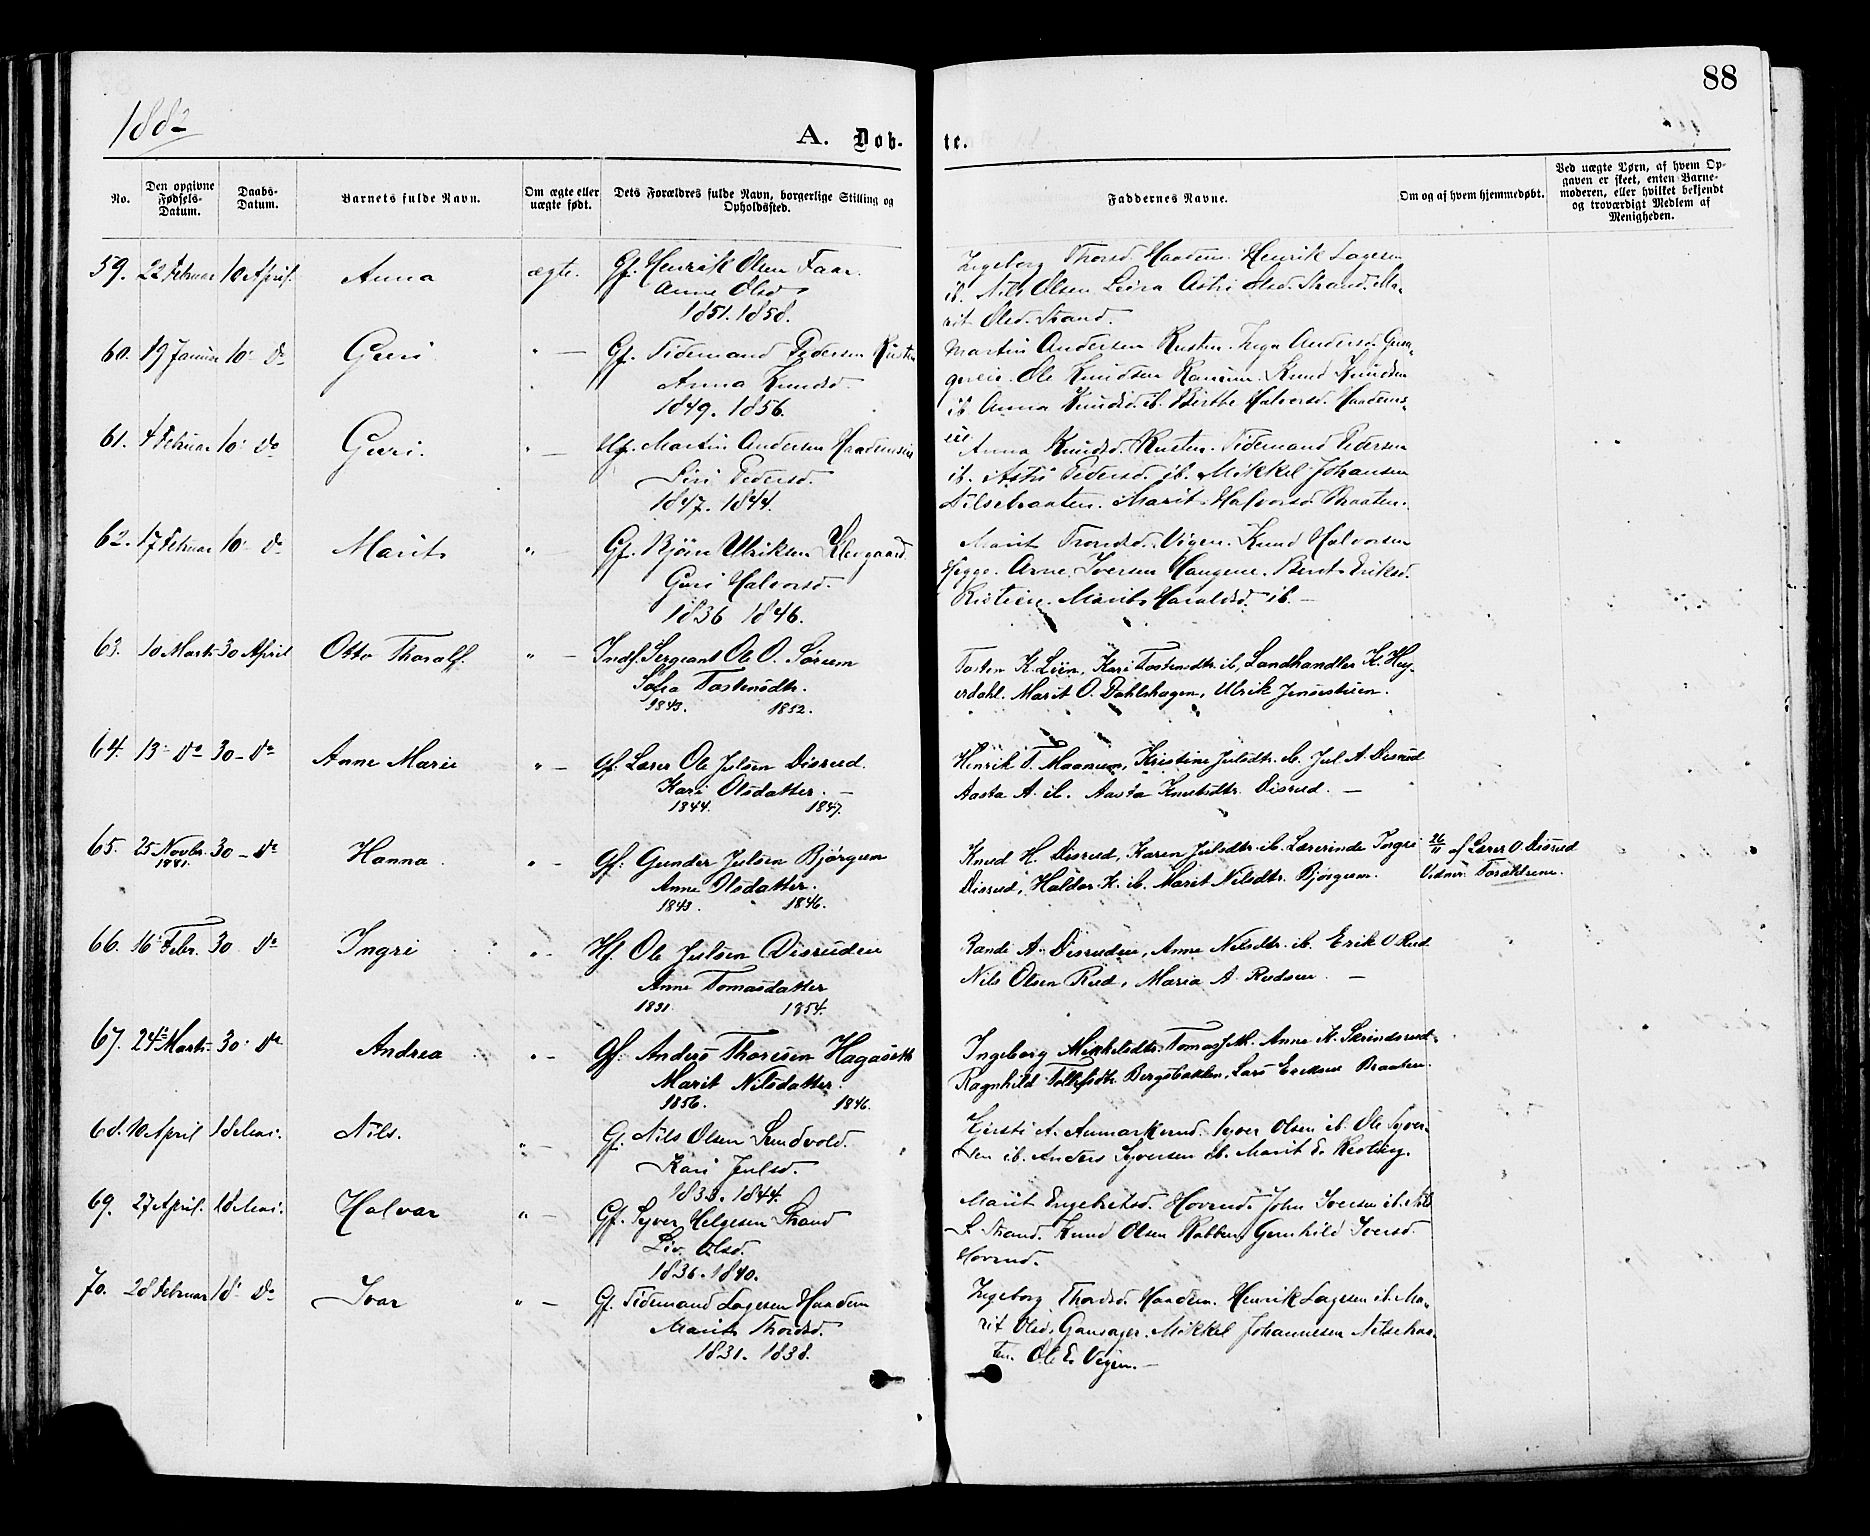 88
1882
A. Døb- te.
No.
Den opgivne Fødsels-Datum.
Daabs-Datum.
Barnets fulde Navn.
Om ægte eller uægte født.
Dets Forældres fulde Navn, borgerlige Stilling og Opholdssted.
Faddernes Navne.
Om og af hvem hjemmedøbt.
Ved uægte Børn, af hvem Opgaven er skeet, enten Barnemoderen, eller hvilket bekjendt og troværdigt Medlem af Menigheden.
59. 22 Februar 10 April. Anna ægte. Gf. Henrik Olsen Faar.
Anne Olsd.
1851. 1858.
Ingeborg Thorsd. Haadem. Henrik Lagesen
ib. Nils Olsen Leira Astri Olsd. Strand. Ma-
rit Olsd. Strand.
60. 19 Januar 10 do Guri " — Gf. Tidemand Pedersen Rusten
Anna Knudsd.
1849. 1856.
Martin Andersen Rusten. Andersd.
Ole Knudsen Knud Knudsen
ib. Anna Knudsd. ib. Birthe Halvorsd. Haadems-
61. 4 Februar 10 do Guri. " — Hf. Martin Andersen Haademseie
Siri Pedersd.
1847. 1844.
eie Anna Knudsd. Rusten. Tidemand Pedersen
ib. Astri Pedersd. ib. Mikkel Johansen
Nilsebraaten. Marit Halvorsd. Braaten.
62. 17 Februar 10 do Marit " — Gf. Bjørn Ulriksen Klevgaard
Guri Halvorsd.
1836 1846.
Marit Trondsd. Vigen. Knud Halvorsen
Hegge. Arne Iversen Haugene. Berit Eriksd.
Marit Haraldsd. ib. —
63. 10 Marts 30 April Otto Thoralf. " — Indf. Sergeant Ole O. Sørum
Sofia Tostensdtr.
1843. 1852.
Tosten K. Liin, Kari Tostensdtr. ib, Landhandler K. Hey-
erdahl. Marit O. Dahlshagen, Ulrik Jensestuen.
64. 13 do 30 - do Anne Marie " — Gf. Lærer Ole Julsen Disrud.
Kari Olsdatter. —
1844. 1847.
Henrik T. Maanum, Kristine Julsdtr. ib. Jul A. Disrud
Aasta A. ib. Aasta Knutsdtr. Disrud. —
65. 25 Novbr. 30 - do Hanna " — Gf. Gunder Julsen Bjørgum
1881.
Anne Olsdatter.
1843. 1846.
Knud H. Disrud, Karen Julsdtr. ib. Lærerinde Ingri 26/11 af Lærer O. Disrud
Disrud, Haldor K. ib. Marit Nilsdtr. Bjørgum. Vidner: Forældrene.
66. 16 Febr. 30 do Ingri " - Hf. Ole Julsen Disruden
Anne Tomasdatter
1831. 1854.
Randi A. Disruden, Anne Nilsdtr. ib. Erik O. Rud
Nils Olsen Rud, Maria A. Rudsen. —
67. 24 Marts 30 do Andrea " - Gf. Anders Thoresen Hagaseth
Marit Nilsdatter.
1856. 1846.
Ingeborg Mikkelsdtr. Tomas M. Anne K. Skrindsrud.
Ragnhild Tollefsdtr. Bergsbakken, Lars Eriksen Braaten.
68. 10 April 18 Mai. Nils. " — G. Nils Olsen Sundvold.
Kari Julsd.
1833. 1844.
Kjersti A. Aumarkerud. Syver Olsen ib. Ole Syver-
sen ib. Anders Syversen ib. Marit E.
69. 27 April. 18 Mai. Halvar " — Gf. Syver Helgesen Strand
Liv Olsd.
1836. 1840.
Marit Engebretsd. Hovrud. John Iversen ib. Nils
S. Strand. Knud Olsen Gunhild Iversd.
Hovrud.
70. 28 Februar 18 do Ivar " — Gf. Tidemand Lagesen Haadem
Marit Thordsd.
1831. 1838.
Ingeborg Thordsd. Haadem. Henrik Lagesen ib. Ma-
rit Olsd. Gausager. Mikkel Johannesen Nilsebraa-
ten. Ole E. Vigen. —